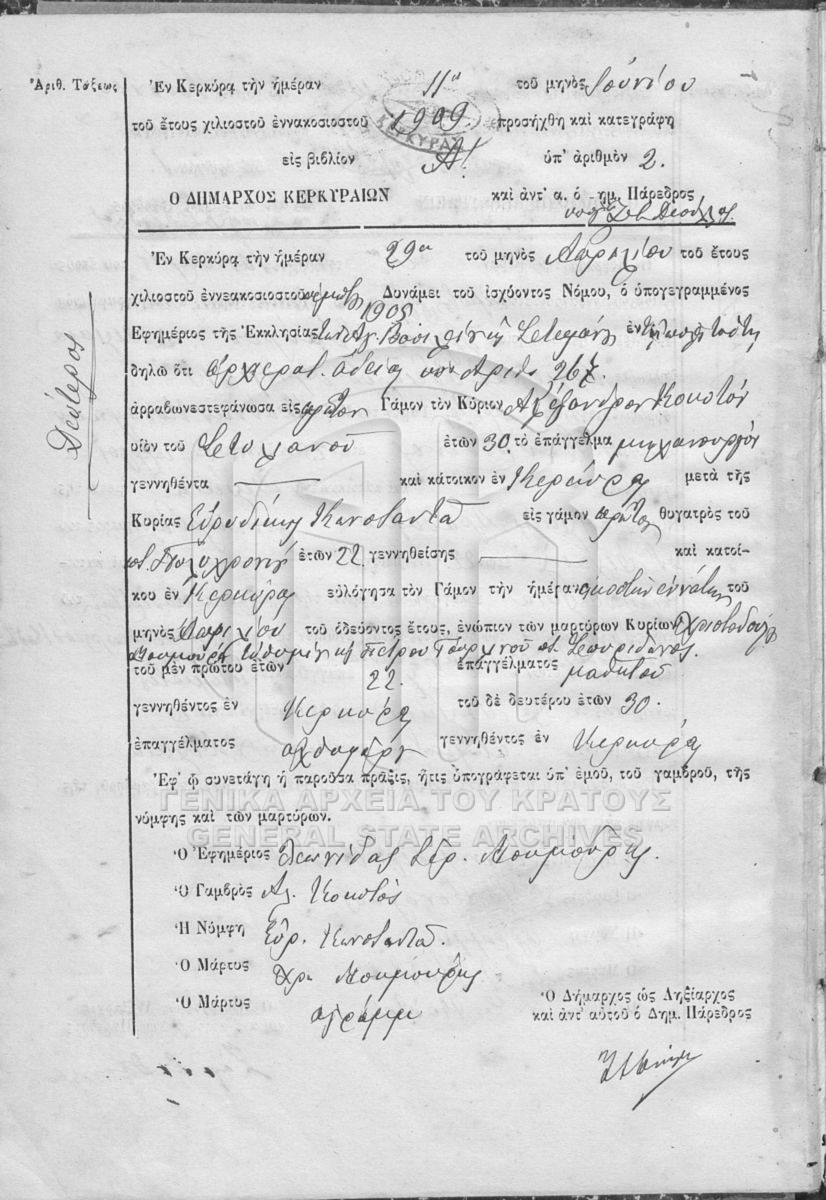 Ἀριθ. Τάξεως
Ἐν Κερκύρᾳ τὴν ἡμέραν 11ην τοῦ μηνὸς Ἰουνίου
τοῦ ἔτους χιλιοστοῦ ἐννακοσιοστοῦ 1909 προσήχθη καὶ κατεγράφη
εἰς βιβλίον Α! ὑπ' ἀριθμὸν 2.
Ο ΔΗΜΑΡΧΟΣ ΚΕΡΚΥΡΑΙΩΝ καὶ ἀντ' α. ὁ δημ. Πάρεδρος
ΚΕΡΚΥΡΑΣ
Δεύτερος
Ἐν Κερκύρᾳ τὴν ἡμέραν 29ην τοῦ μηνὸς Ἀπριλίου τοῦ ἔτους
χιλιοστοῦ ἐννεακοσιοστοῦ 1909 Δυνάμει τοῦ ἰσχύοντος Νόμου, ὁ ὑπογεγραμμένος
Ἐφημέριος τῆς Ἐκκλησίας τῶν Ἁγ. Βασιλείου κ Στεφάνου ἐν
δηλῶ ὅτι ἀρχιερατ. ἀδείᾳ ὑπ' Ἀριθ. 267.
ἀρραβωνεστεφάνωσα εἰς πρῶτον Γάμον τὸν Κύριον Ἀλέξανδρον Κοκοτὸν
υἱὸν τοῦ Στυλιανοῦ ἐτῶν 30 τὸ ἐπάγγελμα μηχανουργὸν
γεννηθέντα — καὶ κάτοικον ἐν Κερκύρᾳ μετὰ τῆς
Κυρίας Εὐρυδίκης Κωνσταντᾶ εἰς γάμον πρῶτον θυγατρὸς τοῦ
ποτ. Πολυχρονίου ἐτῶν 22 γεννηθείσης — καὶ κατοί-
κου ἐν Κερκύρᾳ εὐλόγησα τὸν Γάμον τὴν ἡμέραν εἰκοστὴν ἐννάτην τοῦ
μηνὸς Ἀπριλίου τοῦ ὁδεύοντος ἔτους, ἐνώπιον τῶν μαρτύρων Κυρίων Χριστοδούλου
Μουμούρη Εὐθυμίου κ Πέτρου ποτ. Σπυρίδωνος.
τοῦ μὲν πρώτου ἐτῶν 22. ἐπαγγέλματος μαθητοῦ
γεννηθέντος ἐν Κερκύρᾳ τοῦ δὲ δευτέρου ἐτῶν 30.
ἐπαγγέλματος γεννηθέντος ἐν Κερκύρᾳ
Ἐφ' ᾧ συνετάγη ἡ παροῦσα πρᾶξις, ἥτις ὑπογράφεται ὑπ' ἐμοῦ, τοῦ γαμβροῦ, τῆς
νύμφης καὶ τῶν μαρτύρων.
ΓΕΝΙΚΑ ΑΡΧΕΙΑ ΤΟΥ ΚΡΑΤΟΥΣ
GENERAL STATE ARCHIVES
Ὁ Ἐφημέριος Λεωνίδας Σπ. Μουμούρης.
Ὁ Γαμβρὸς Αλ. Κοκοτός
Ἡ Νύμφη Εὐρ. Κωνσταντᾶ.
Ὁ Μάρτυς Χρ. Μουμούρης
Ὁ Μάρτυς ἀγράμμ.
Ὁ Δήμαρχος ὡς Ληξίαρχος
καὶ ἀντ' αὐτοῦ ὁ Δημ. Πάρεδρος